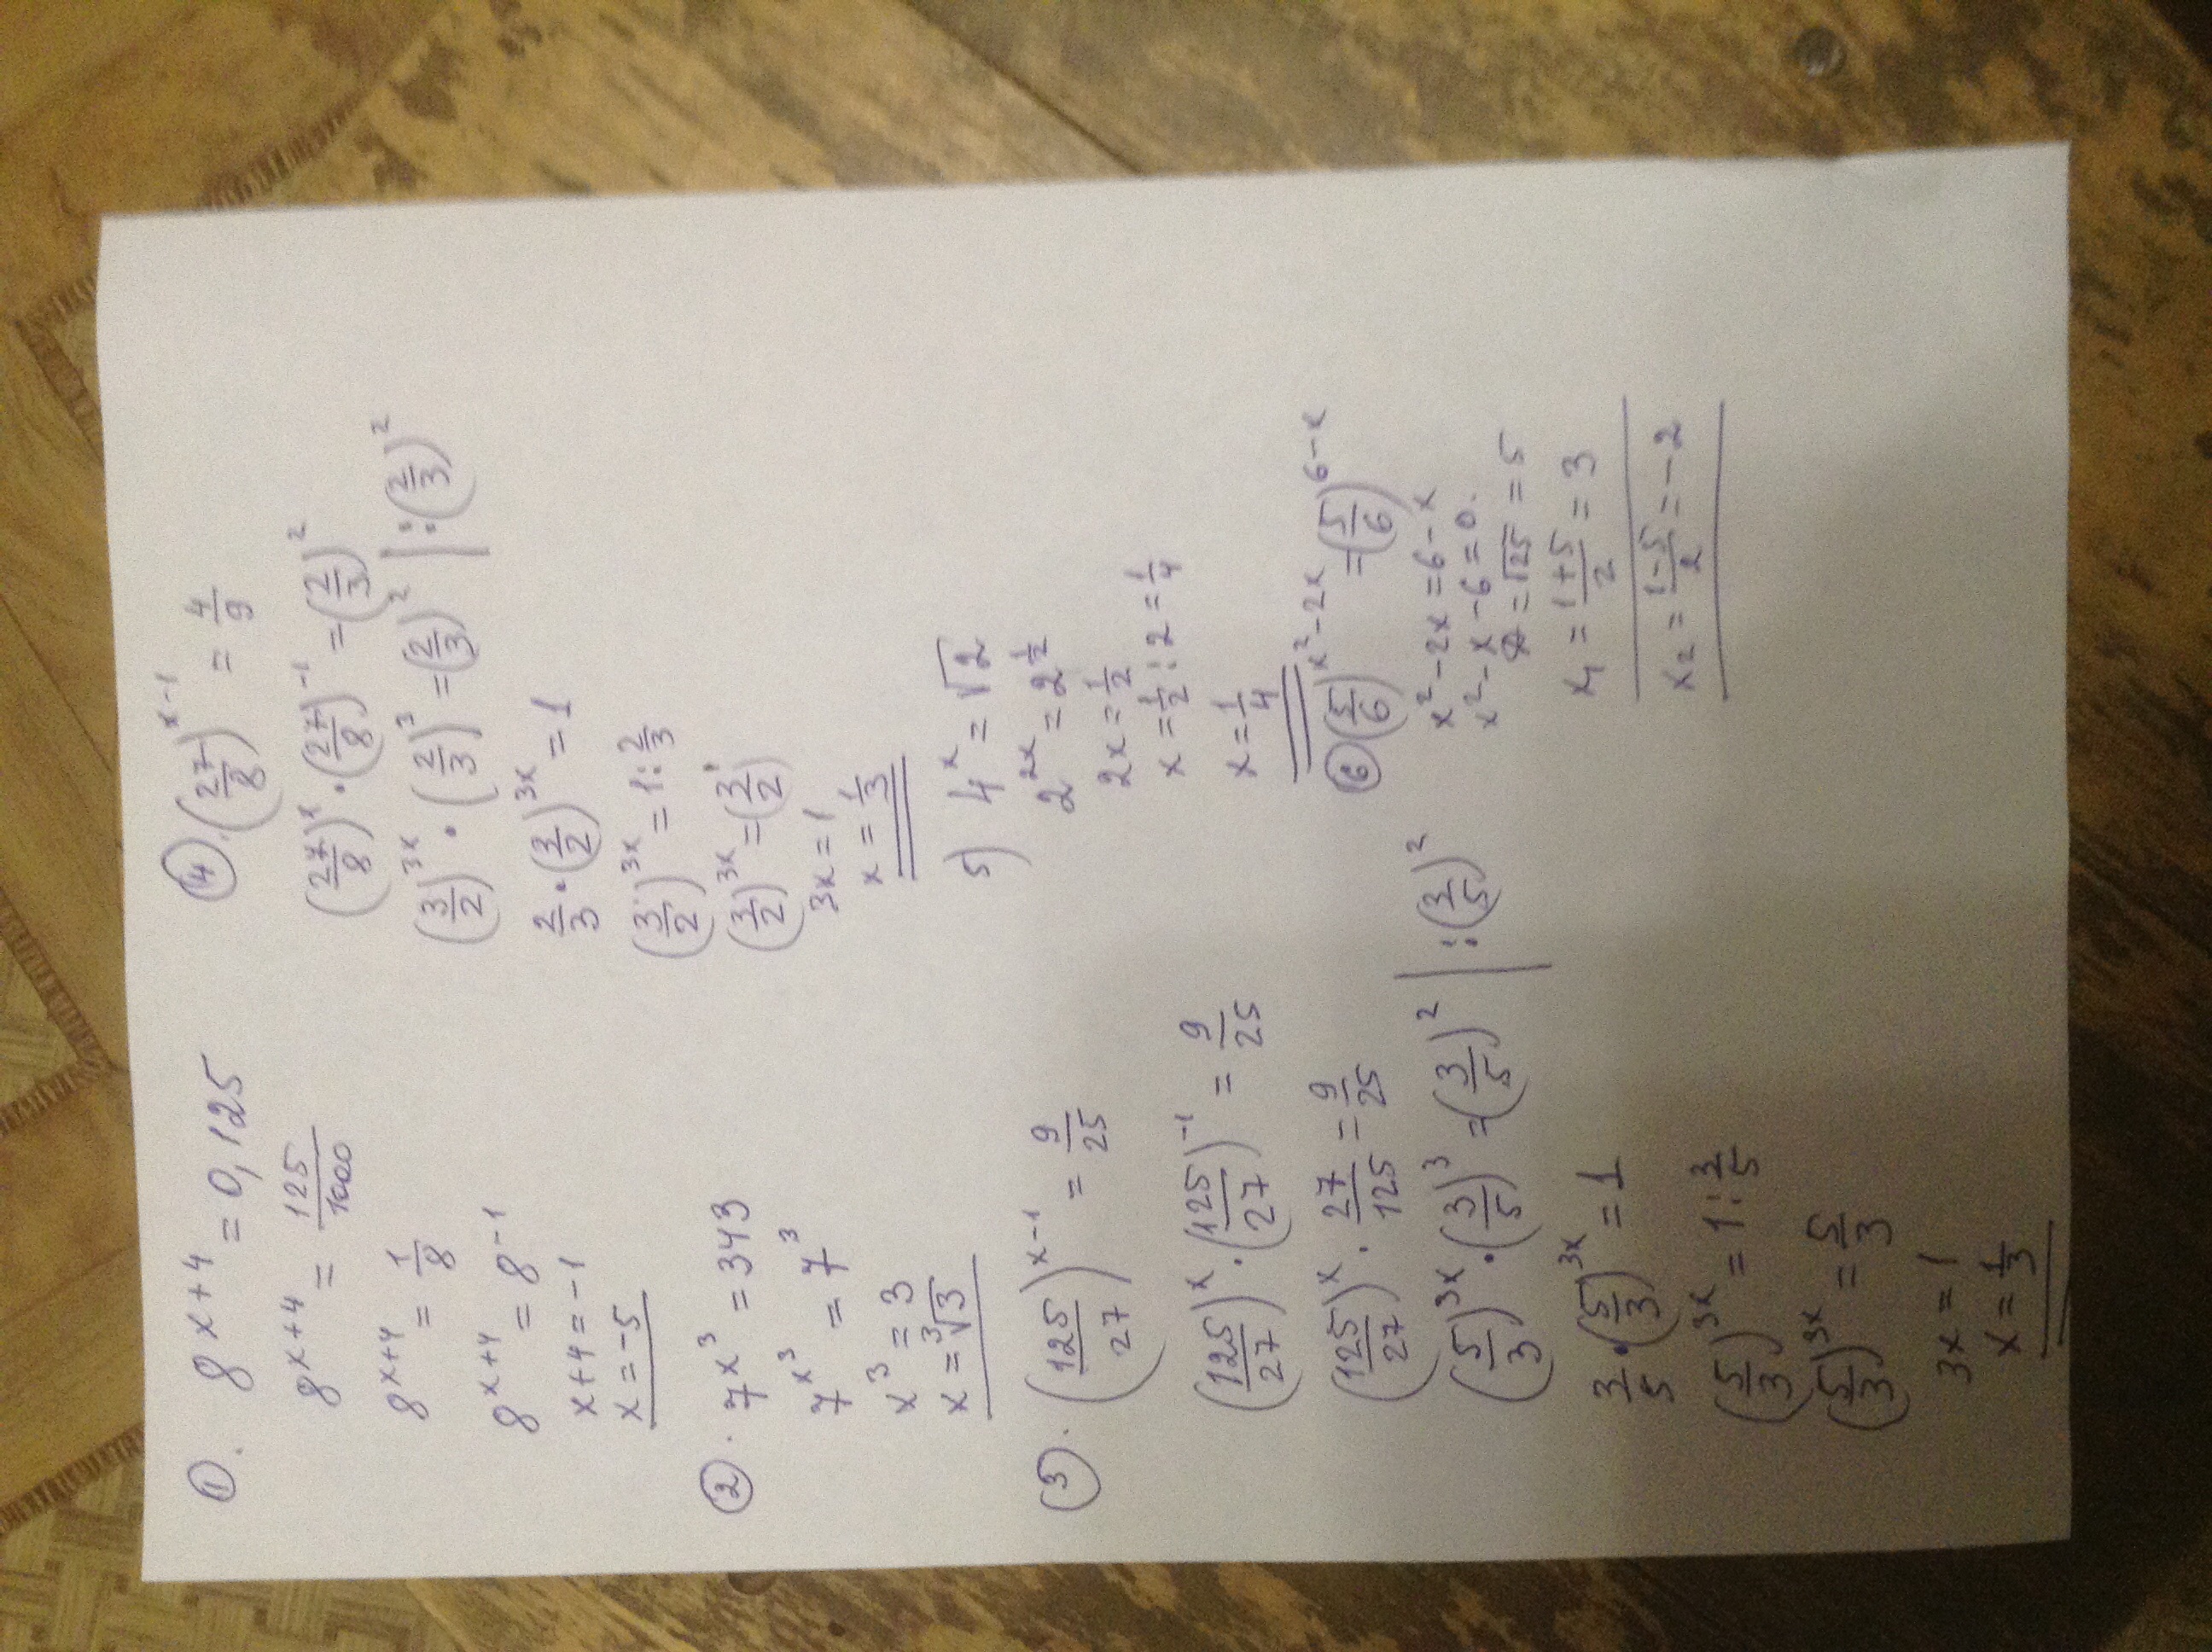 ①. 8^(x+4) = 0,125
8^(x+4) = 125/1000
8^(x+4) = 1/8
8^(x+4) = 8^(-1)
x+4 = -1
x = -5
②. 7^(x^3) = 343
7^(x^3) = 7^3
x^3 = 3
x = ∛3
③. (125/27)^(x-1) = 9/25
(125/27)^x · (125/27)^(-1) = 9/25
(125/27)^x · 27/125 = 9/25
(5/3)^(3x) · (3/5)^3 = (3/5)^2 | : (3/5)^2
3/5 · (5/3)^(3x) = 1
(5/3)^(3x) = 1 : 3/5
(5/3)^(3x) = 5/3
3x = 1
x = 1/3
④. (27/8)^(x-1) = 4/9
(27/8)^x · (27/8)^(-1) = (2/3)^2
(3/2)^(3x) · (2/3)^3 = (2/3)^2 | : (2/3)^2
2/3 · (3/2)^(3x) = 1
(3/2)^(3x) = 1 : 2/3
(3/2)^(3x) = (3/2)
3x = 1
x = 1/3
5) 4^x = √2
2^(2x) = 2^(1/2)
2x = 1/2
x = 1/2 : 2 = 1/4
x = 1/4
⑥ (5/6)^(x^2-2x) = (5/6)^(6-x)
x^2 - 2x = 6 - x
x^2 - x - 6 = 0.
= √25 = 5
x1 = (1+5)/2 = 3
x2 = (1-5)/2 = -2